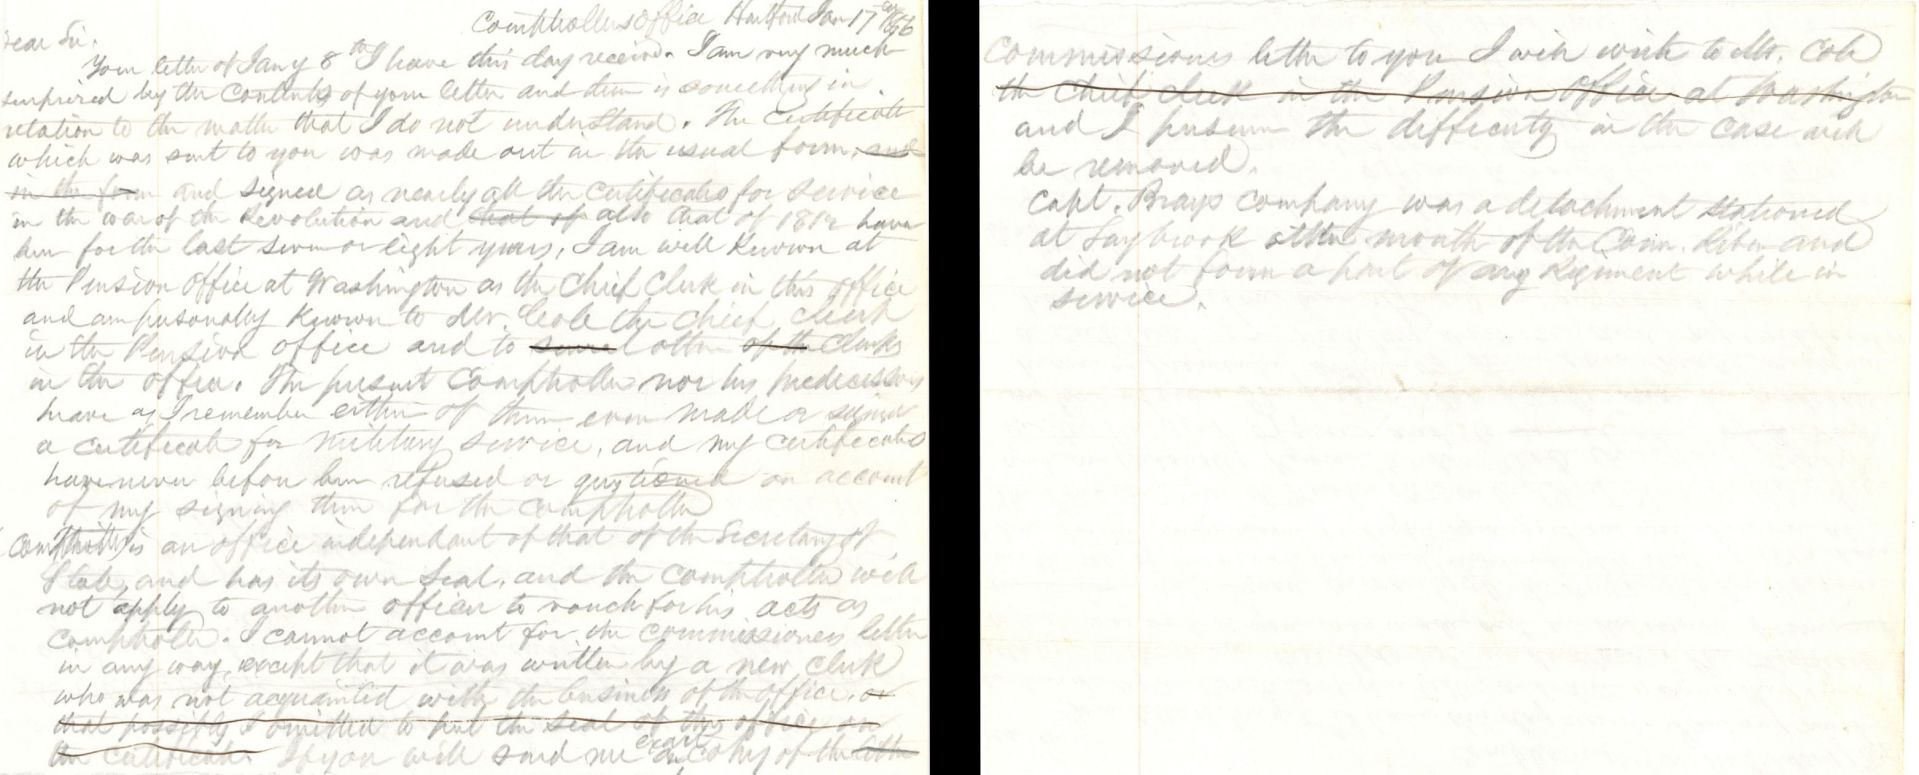 Comptrollers Office Hartford Jan 17th 1856
Dear Sir.
Your letter of Jany 8th I have this day received. I am very much
surprised by the contents of your letter and there is something in
relation to the matter that I do not understand. The Certificate
which was sent to you was made out in the usual form, and
in the form and signed as nearly all the certificates for service
in the war of the Revolution and that of also that of 1812 have
been for the last seven or eight years, I am well known at
the Pension office at Washington as the Chief Clerk in this office
and am personally known to Mr. Cole the chief clerk
in the Pension office and to several other of the Clerks
in the office. The present Comptroller nor his predecessors
have as I remember either of them ever made or signed
a certificate for military service, and my certificates
have never before been refused or questioned on account
of my signing them for the comptroller
Comptroller is an office independent of that of the Secretary of
State, and has its own seal, and the comptroller will
not apply to another officer to vouch for his acts as
comptroller. I cannot account for the commissioners letter
in any way, except that it was written by a new clerk
who was not acquainted with the business of the office, or
that possibly I omitted to put the seal of this office on
the certificate. If you will send me an exact copy of the letter
Commissioners letter to you I will write to Mr. Cole
the Chief clerk in the Pension Office at Washington
and I presume the difficulty in the case will
be removed.
Capt. Brays company was a detachment stationed
at Saybrook at the mouth of the Conn. River and
did not form a part of any Regiment while in
service.